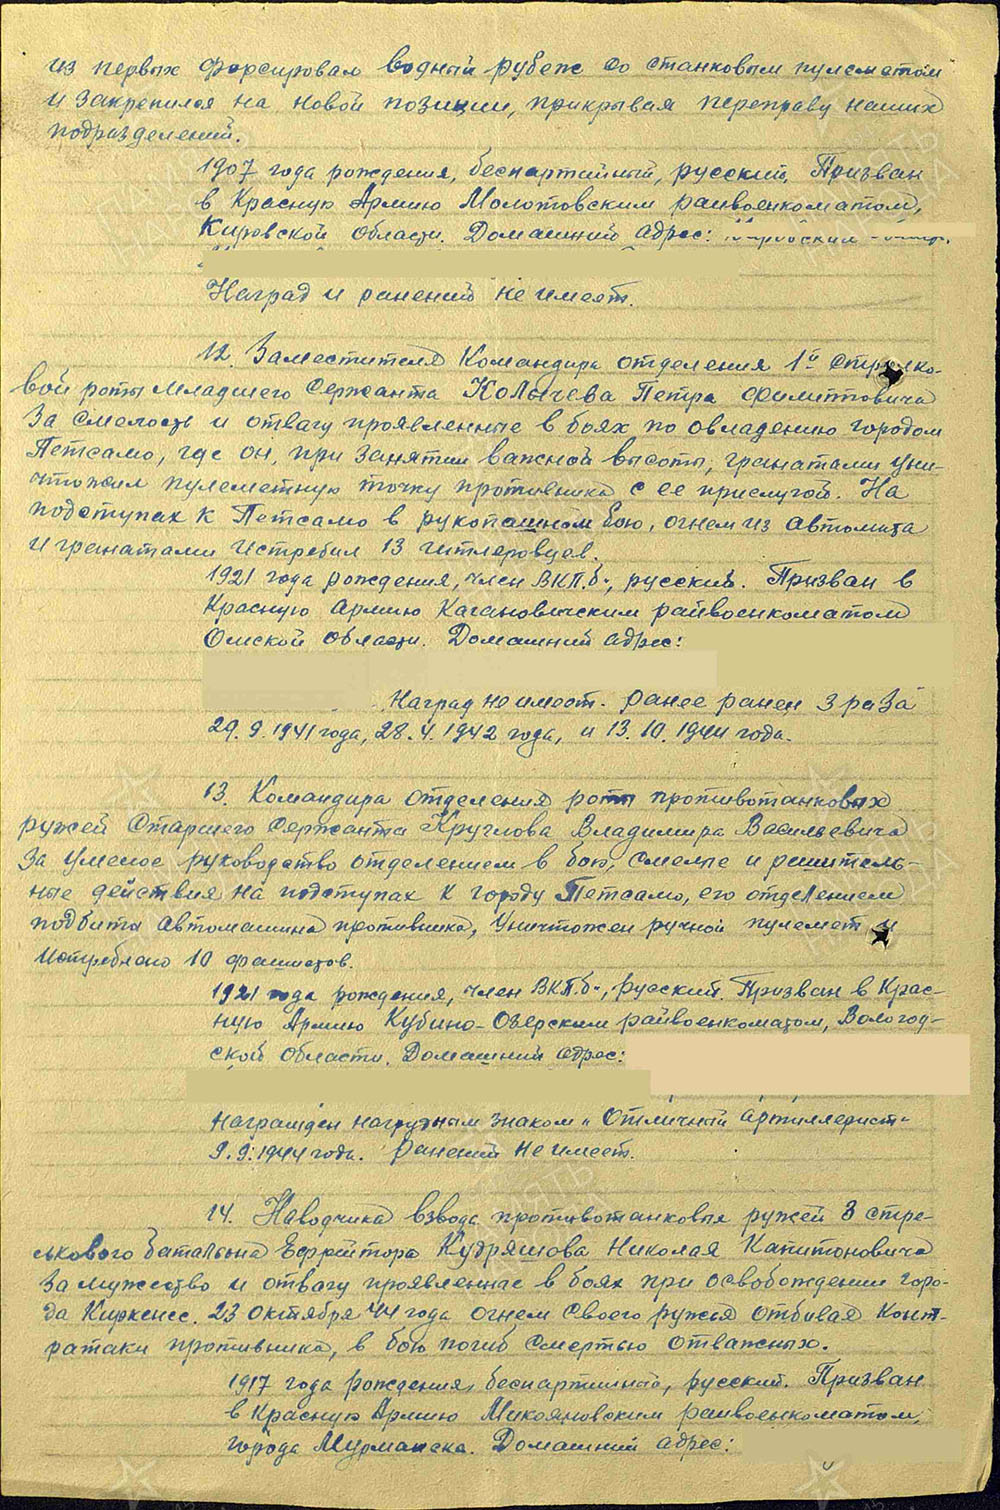 из первых форсировал водный рубеж со станковым пулеметом
и закрепился на новой позиции, прикрывая переправу наших
подразделений.
1907 года рождения, беспартийный, русский, Призван
в Красную Армию Молотовским райвоенкоматом,
Кировской области. Домашний адрес:
Наград и ранений не имеет.
12. Заместителя Командира отделения 1й стрелко-
вой роты Младшего Сержанта Колычева Петра Филипповича
За смелость и отвагу проявленные в боях по овладению городом
Петсамо, где он, при занятии важной высоты, гранатами уни-
чтожил пулеметную точку противника с ее прислугой. На
подступах к Петсамо в рукопашном бою, огнем из автомата
и гранатами истребил 13 гитлеровцев.
1921 года рождения, член ВКП.б", русский. Призван в
Красную Армию Кагановичским райвоенкоматом
Омской области. Домашний адрес:
Наград не имеет. ранее ранен 3 раза
29.9.1941 года, 28.4.1942 года, и 13.10.1944 года.
13. Командира отделения роты противотанковых
ружей Старшего Сержанта Круглова Владимира Васильевича
За умелое руководство отделением в бою, смелые и решитель-
ные действия на подступах к городу Петсамо, его отделением
подбита автомашина противника, Уничтожен ручной пулемет и
истреблено 10 фашистов.
1921 года рождения, член ВКП.б", русский. Призван в Крас-
ную Армию Кубино-Озерским райвоенкоматом, Вологод-
ской области. Домашний адрес:
Награжден нагрудным знаком "Отличный артиллерист"
9.9.1944 года. Ранений не имеет.
14. Наводчика взвода противотанковых ружей 3 стре-
лькового баталь́она Ефрейтора Кудряшова Николая Капитоновича
За мужество и отвагу проявленные в боях при освобождении горо-
да Киркенес. 23 октября 44 года огнем своего ружья отбивая конт-
ратаки противника, в бою погиб смертью отважных.
1917 года рождения, беспартийный, русский. Призван
в Красную Армию Микояновским райвоенкоматом,
города Мурманска. Домашний адрес:
ПАМЯТЬ
НАРОДА